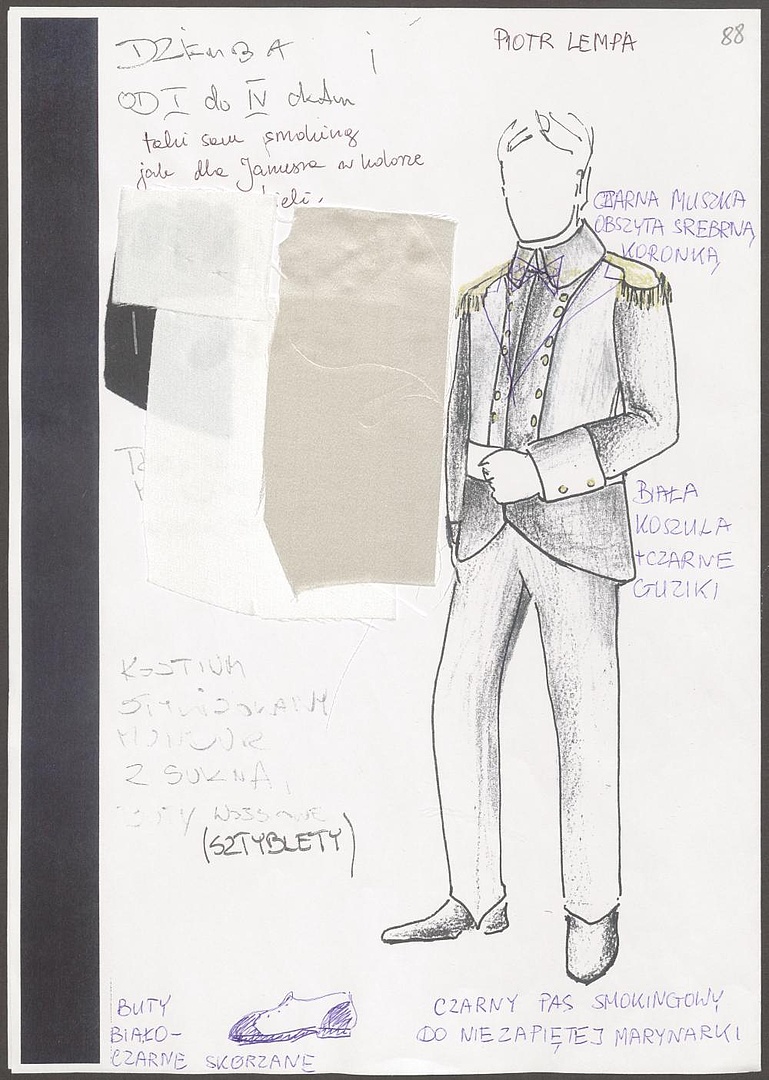 DZIEMBA i
PIOTR LEMPA
88
OD I do IV odsłon
taki sam smoking
jak dla Janusza w kolorze
bieli.
CZARNA MUSZKA
OBSZYTA SREBRNĄ
KORONKĄ
BIAŁA
KOSZULA
+CZARNE
GUZIKI
KOSTIUM
Z SUKNA,
(SZTYBLETY)
BUTY
BIAŁO-
CZARNE SKÓRZANE
CZARNY PAS SMOKINGOWY
DO NIEZAPIĘTEJ MARYNARKI